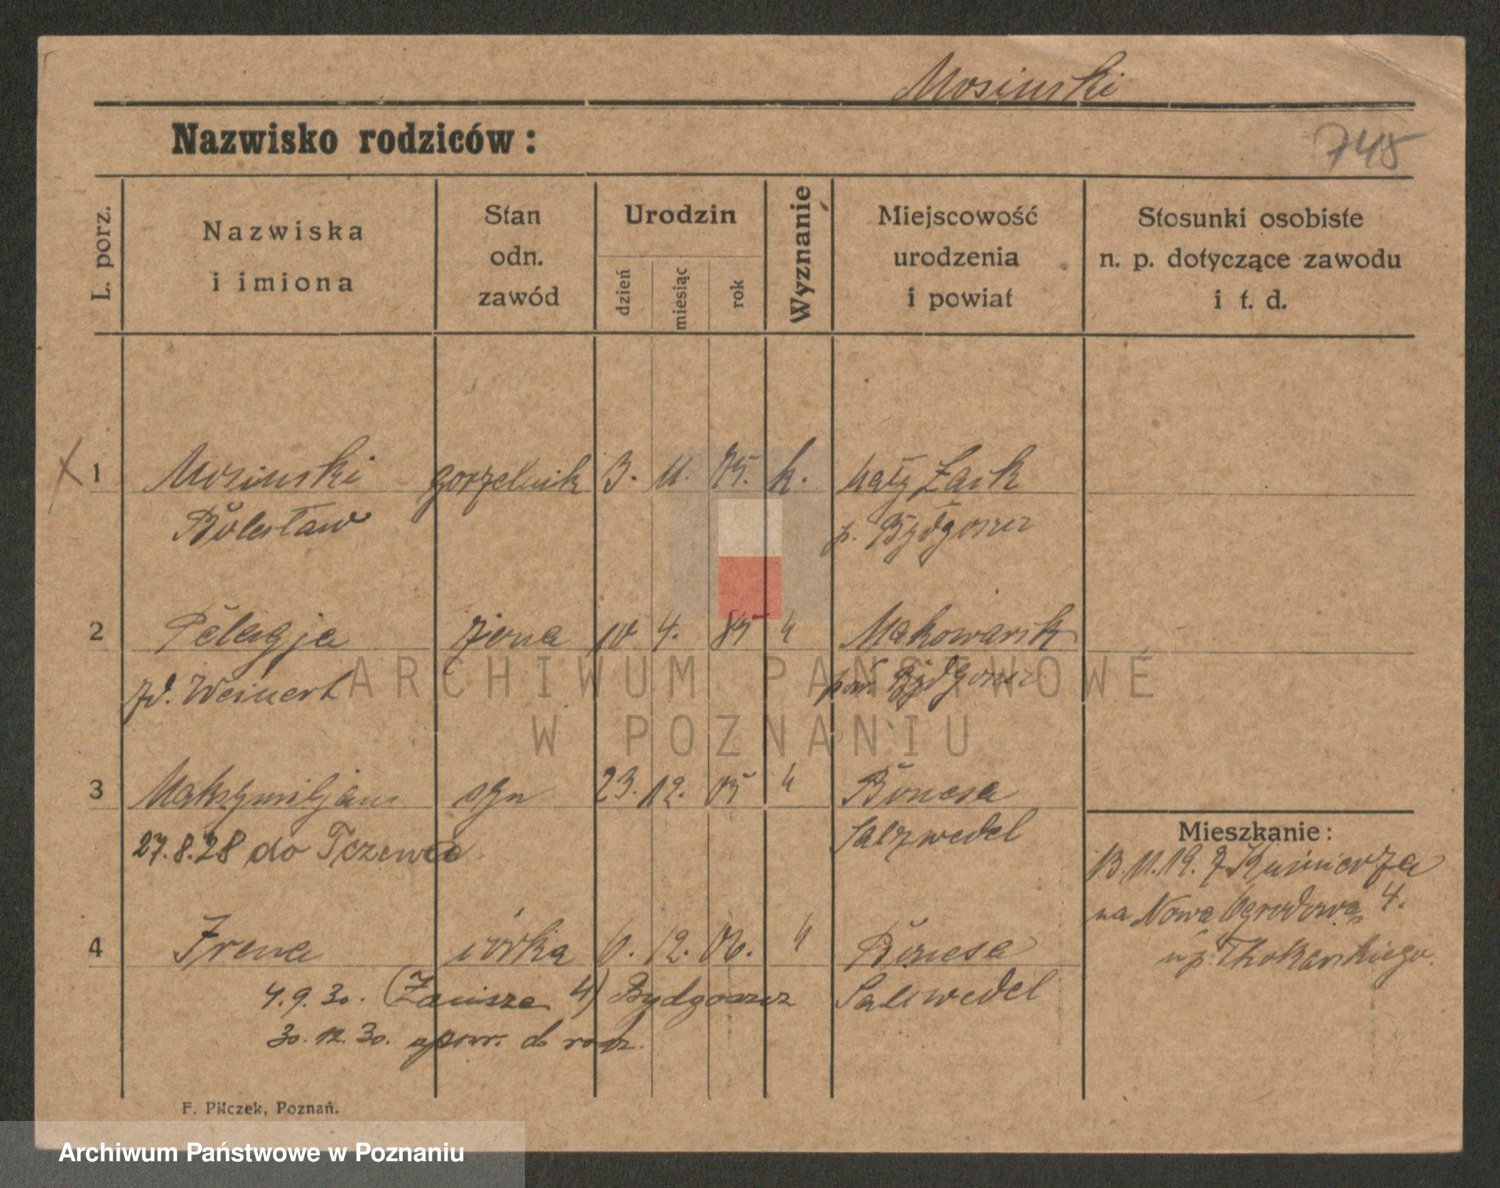 Mosinski
Nazwisko rodziców:
748
L. porz.
Nazwiska
i imiona
Stan
odn.
zawód
Urodzin
dzień
miesiąc
rok
Wyznanie
Miejscowość
urodzenia
i powiat
Stosunki osobiste
n. p. dotyczące zawodu
i t. d.
X 1 Mosinski gorzelnik 3. 11. 75. k. Mały
Bolesław p. Bydgoszcz
2 Pelagja żona 10 4. 85 "
zd. Weinert pow. Bydgoszcz
3 Maksymiljan syn 23. 12. 05 "
27.8.28 do Tczewa Salzwedel
Mieszkanie:
13.11.19. z Kuśnierza
na Nowa Ogrodowa 4.
u p. Thokarskiego.
4 Irena córka 6. 12. 06. "
4.9.30. (Zacisze 4) Bydgoszcz Salzwedel
30.12.30. z pow. do rodz.
F. Pilczek, Poznań.
ARCHIWUM PAŃSTWOWE
W POZNANIU
Archiwum Państwowe w Poznaniu